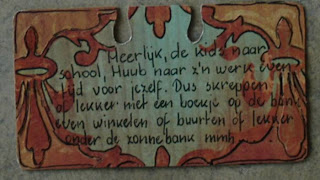 Heerlijk, de kids naar
school, Huub naar z'n werk even
tijd voor jezelf. Dus skreppen
of lekker met een boekje op de bank
even winkelen of buurten of lekker
onder de zonnebank mmh